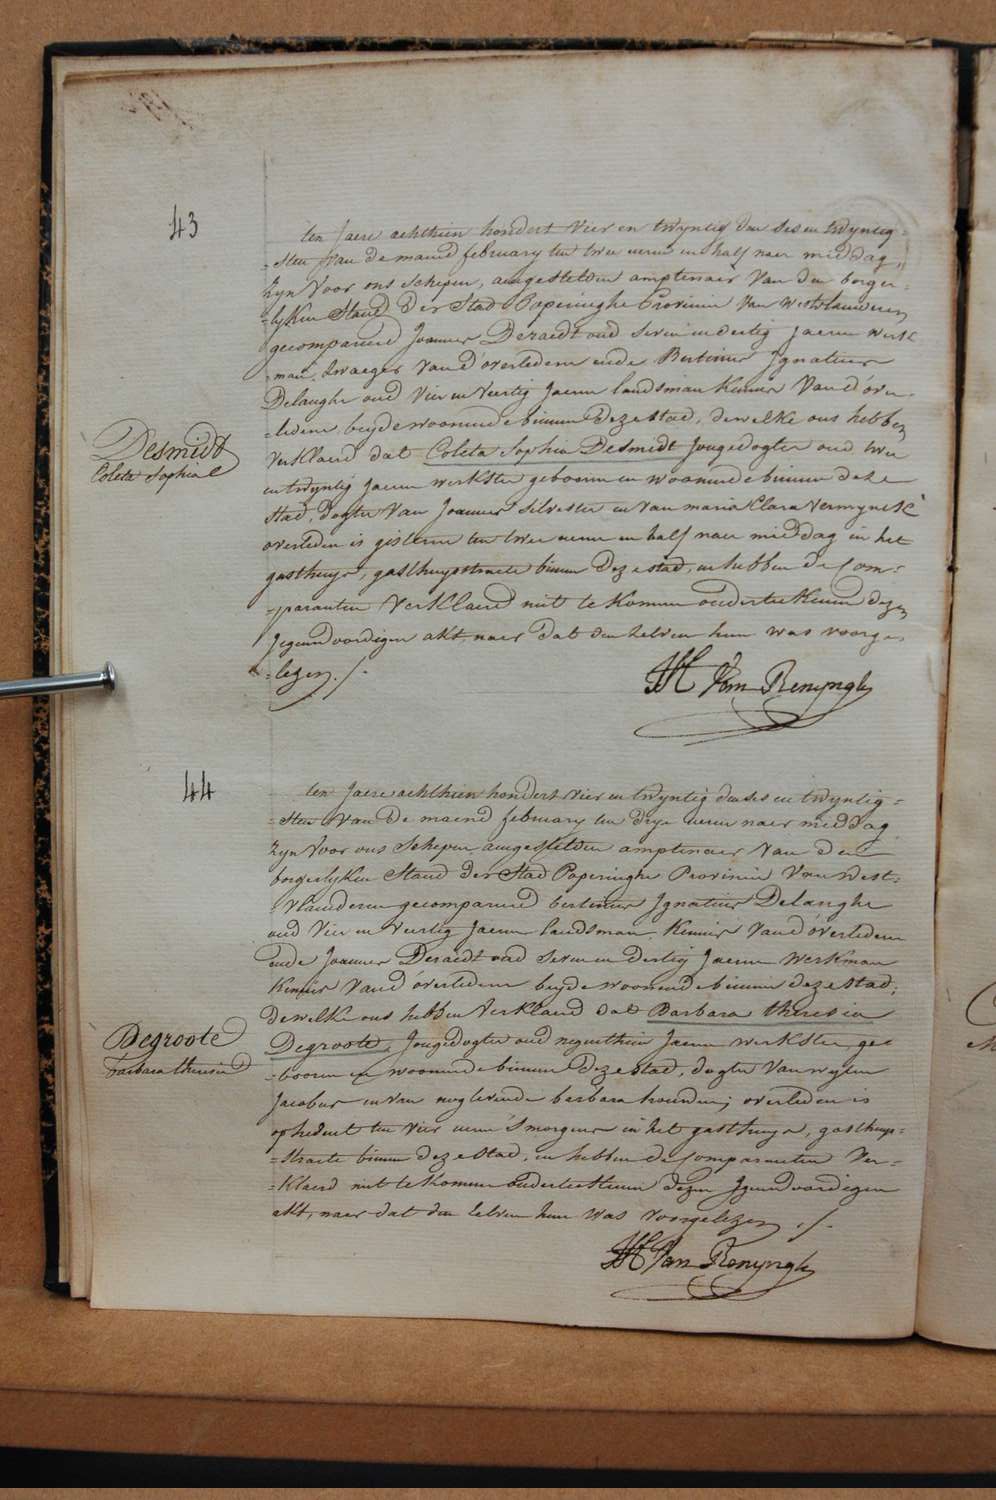 43
ten Jaere achthien hondert vier en twyntig den ses en twyntig-
-sten van de maend february ten twee uren en half naer middag,
zyn voor ons schepen, aengestelden amptenaer van den borger-
-lyken Stand der Stad Poperinghe Provincie van Westvlaenderen
gecompareerd Joannes Deraedt oud seven en dertig Jaeren werk
man, zwaeger van d'overledene ende Bertinus Ignatius
Delanghe oud vier en veertig Jaeren landsman kennis van d'ove-
-ledene beyde woonende binnen deze stad, dewelke ons hebben
verklaerd dat Coleta Sophia Desmidt Jongedogter oud twee
en twyntig Jaeren werkster geboren en woonende binnen deze
Stad, dogter van Joannes Silvester en van maria Clara Vermynck
overleden is gisteren ten twee uren en half naer middag in het
gasthuys, gasthuysstraete binnen deze stad, en hebben de Com-
-paranten verklaerd niet te konnen onderteekenen dezen
Jegenwoordigen akt, naer dat den zelven hun was voorge-
-lezen ./.
Desmidt
Coleta Sophia
JH Van Renynghe
44
ten Jaere achthien hondert vier en twyntig den ses en twyntig-
-sten van de maend february ten drye uren naer middag
zyn voor ons schepen aengestelden amptenaer van den
borgerlyken Stand der Stad Poperinghe Provincie van West-
-vlaenderen gecompareerd bertinus Ignatius Delanghe
oud vier en veertig Jaeren landsman, kennis van d'overledene
ende Joannes Deraedt oud seven en dertig Jaeren werkman
kennis van d'overledene beyde woonende binnen deze stad,
dewelke ons hebben verklaerd dat Barbara theresia
Degroote, Jongedogter oud negenthien Jaeren werkster, ge-
-boren en woonende binnen deze stad, dogter van wylen
Jacobus en van nog levende barbara houden; overleden is
op heden ten vier uren 's morgens in het gasthuys, gasthuys-
-straete binnen deze stad, en hebben de Comparanten ver-
-klaerd niet te konnen onderteekenen dezen Jegenwoordigen
akt, naer dat den zelven hun was voorgelezen ./.
Degroote
barbara theresia
JH Van Renynghe